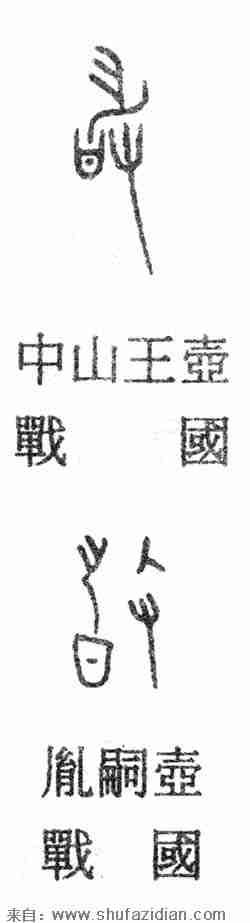 中山王壺
戰國
胤嗣壺
戰國
来自：www.shufazidian.com